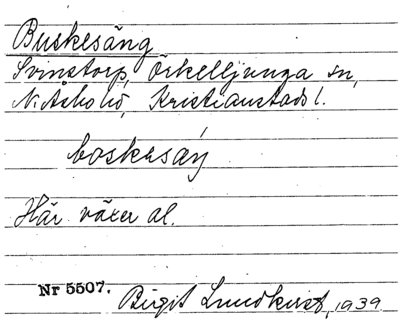 Buskesäng
Svinstorp, Örkelljunga sn,
N. Åsbo hd, Kristianstads l.
boskesäŋ
Här växer al.
Nr 5507. Birgit Lundkvist, 1939